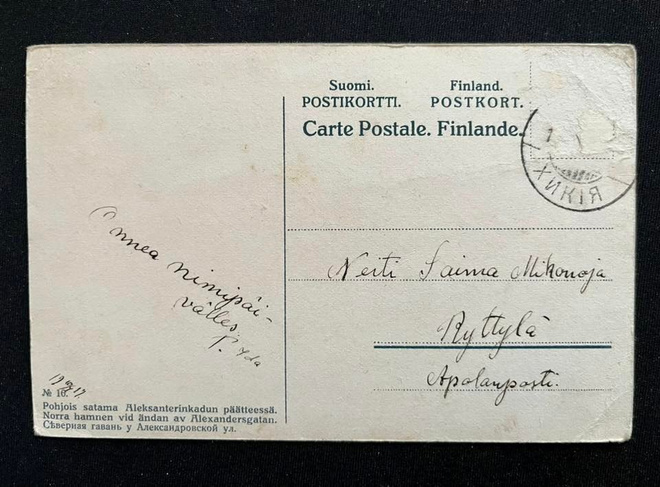 Suomi. Finland.
POSTIKORTTI. POSTKORT.
Carte Postale. Finlande.
1
ХИКІЯ
Onnea nimipäi-
välles
Neiti Saima Mikonoja
Ryttylä
№ 10.
Pohjois satama Aleksanterinkadun päätteessä.
Norra hamnen vid ändan av Alexandersgatan.
Сѣверная гавань у Александровской ул.